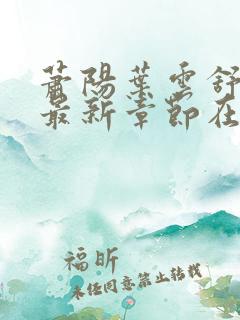 蕭陽葉雲舒
最新章節在
福昕
未经同意禁止转载